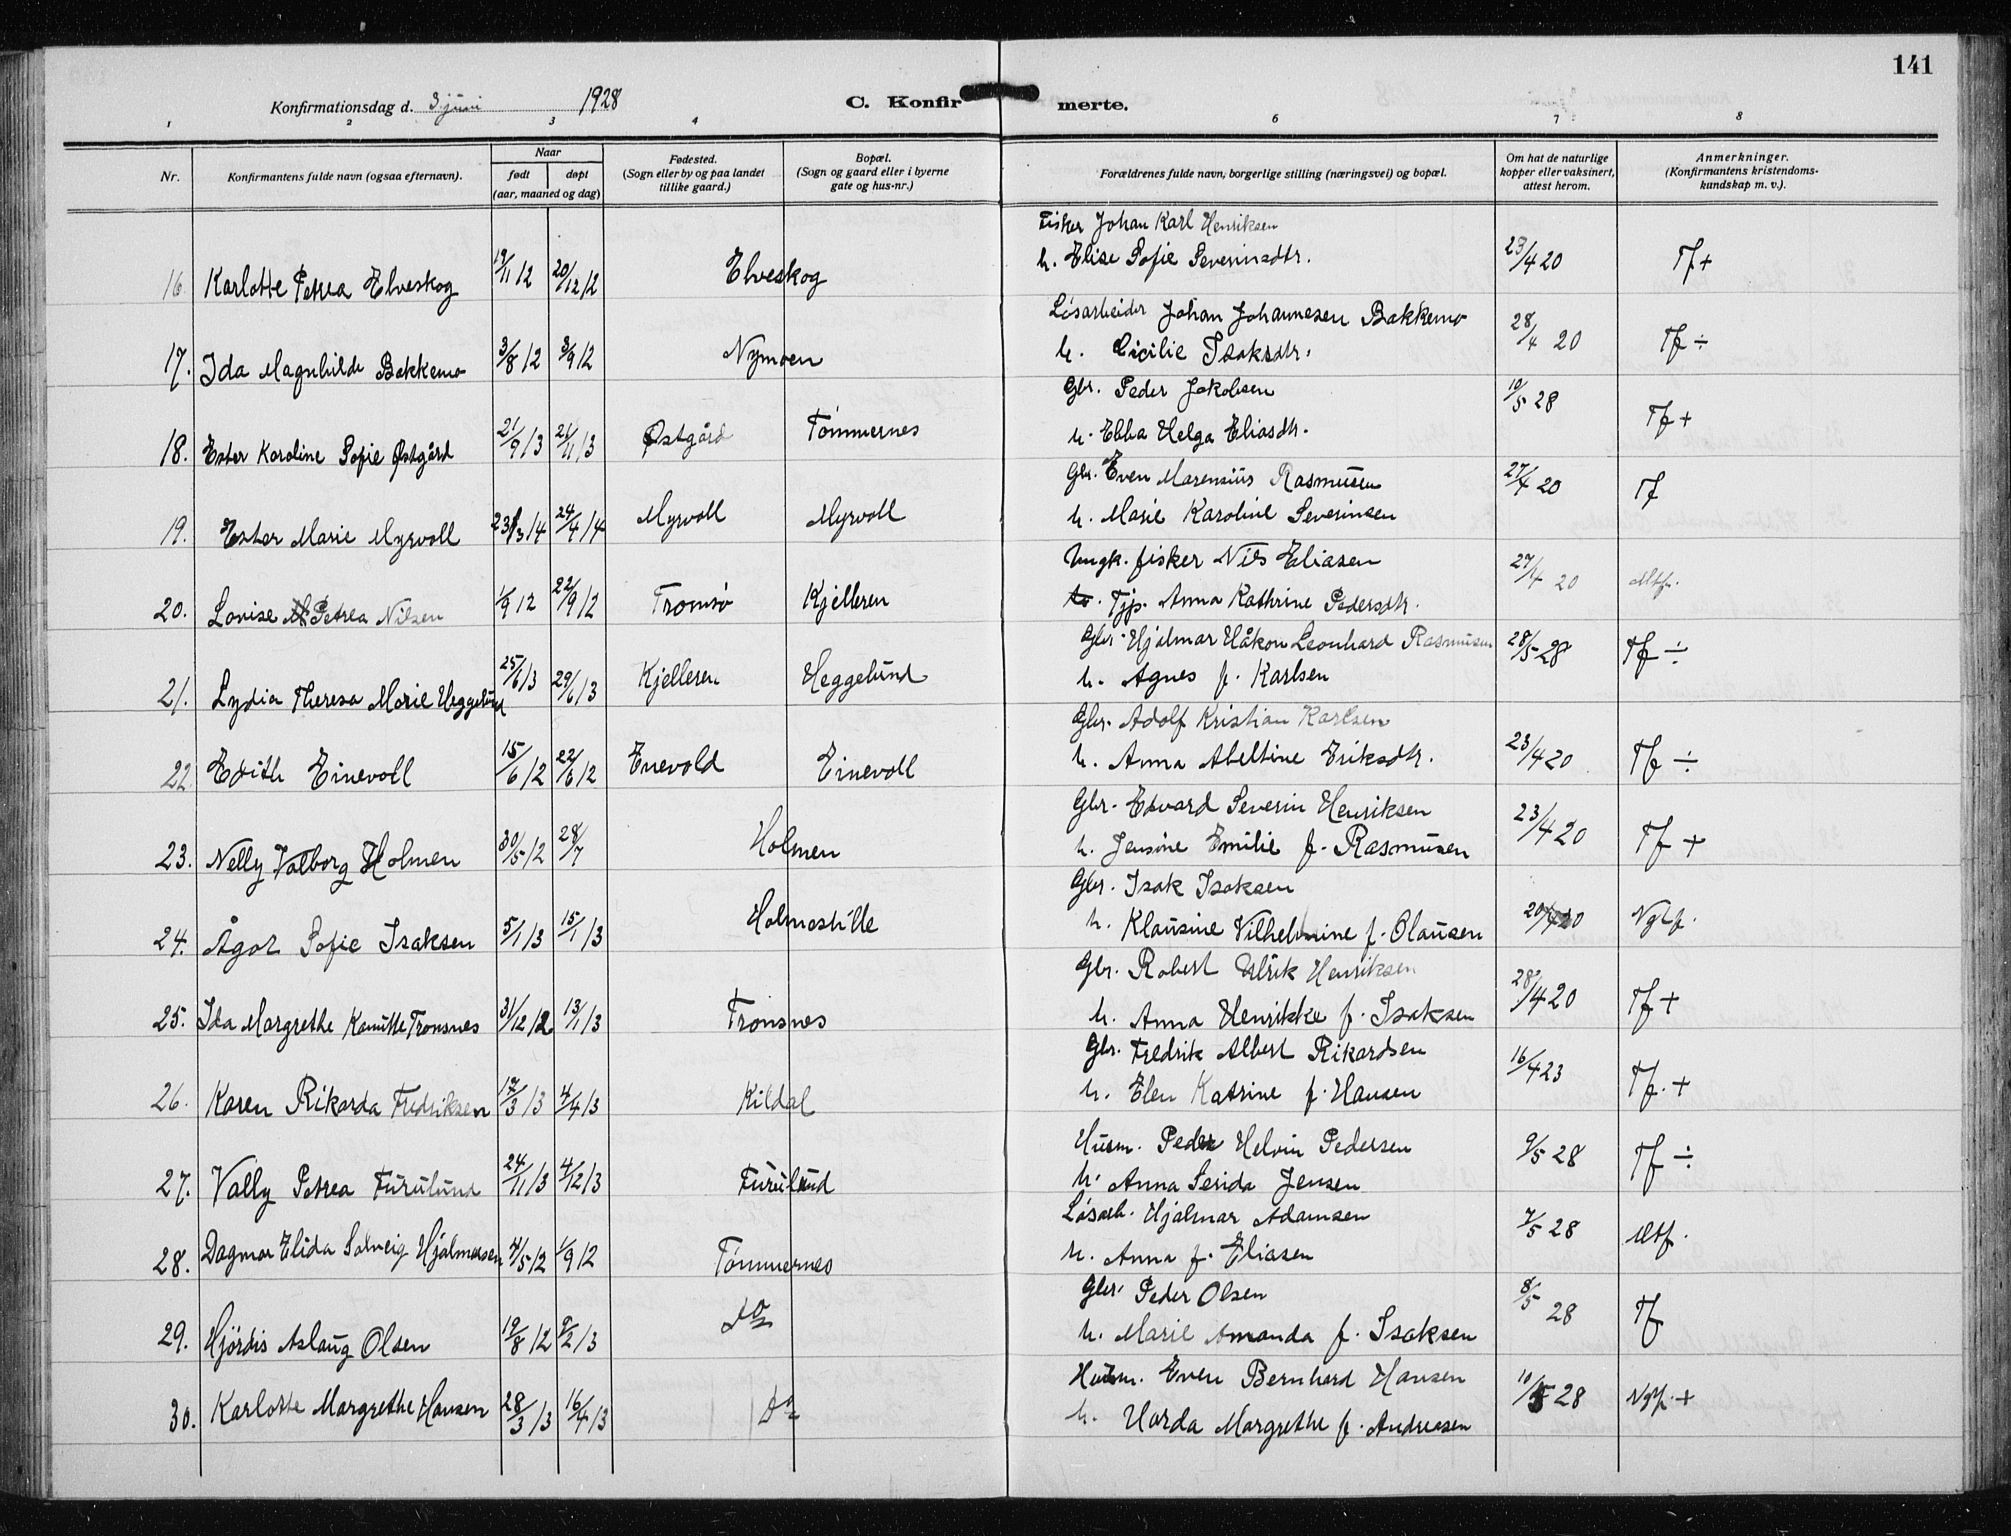 141
Konfirmationsdag d. 3 juni 1928
C. Konfirmerte.
1 2 3 4 6 7 8
Nr. Konfirmantens fulde navn (ogsaa efternavn). Naar født døpt (aar, maaned og dag) Fødested. (Sogn eller by og paa landet tillike gaard.) Bopæl. (Sogn og gaard eller i byerne gate og hus-nr.) Forældrenes fulde navn, borgerlige stilling (næringsvei) og bopæl. Om hat de naturlige kopper eller vaksinert, attest herom. Anmerkninger. (Konfirmantens kristendoms-kundskap m. v.).
Fisker Johan Karl Henriksen
16 Karlotte Petrea Elveskog 19/11 12 20/12 12 Elveskog h. Elise Sofie Severinsdtr. 23/4 20 Tf +
Løsarbeider Johan Johannesen Bakkemo
17. Ida Magnhilde Bakkemo 3/8 12 8/9 12 Nymoen h. Cicilie Isaksdtr. 28/4 20 Tf ÷
Gbr. Peder Jakobsen
18. Ester Karoline Sofie Østgård 21/9 13 21/11 13 Østgård Tømmernes h. Ebba Helga Eliasdtr. 10/5 28 Tf +
Gbr. Even Marensius Rasmusen
19. Ester Marie Myrvoll 23/3 14 24/4 14 Myrvoll Myrvoll h. Marie Karoline Severinsen 27/4 20 Tf
Ungk. fisker Nils Eliasen
20. Lovise Petrea Nilsen 1/9 12 22/9 12 Tromsø Kjelleren Tjp. Anna Kathrine Pedersdtr. 27/4 20 Mtf.
Gbr. Hjalmar Håkon Leonhard Rasmusen
21. Lydia Theresa Marie Heggelund 25/6 13 29/6 13 Kjelleren Heggelund h. Agnes f. Karlsen 28/5 28 Tf ÷
Gbr. Adolf Kristian Karlsen
22 Edith Einevoll 15/6 12 22/6 12 Enevold Einevoll h. Anna Abeltine Eriksdtr. 23/4 20 Tf ÷
Gbr. Edvard Severin Henriksen
23. Nelly Valborg Holmen 30/5 12 28/7 Holmen h. Jensine Emilie f. Rasmusen 23/4 20 Tf +
Gbr. Isak Isaksen
24. Ågot Sofie Isaksen 5/1 13 15/1 13 Holmeslille h. Klausine Vilhelmine f. Olausen 20/4 20 Ngtf.
Gbr. Robert Ulrik Henriksen
25. Ida Margrethe Kamille Tronsnes 31/12 12 13/1 13 Tronsnes h. Anna Henrikke f. Isaksen 28/4 20 Tf +
Gbr. Fredrik Albert Rikardsen
26. Karen Rikarda Fredriksen 17/3 13 4/4 13 Kildal h. Elen Katrine f. Hansen 16/4 23 Tf. +
Husm. Peder Helvin Pedersen
27. Vally Petrea Furulund 24/11 13 4/12 13 Furulund h. Anna Serida Jensen 9/5 28 Tf ÷
Løsarb. Hjalmar Adamsen
28. Dagmar Elida Solveig Hjalmarsen 4/5 12 1/9 12 Tømmernes h. Anna f. Eliasen 7/5 28 Mtf.
Gbr. Peder Olsen
29. Hjördis Aslaug Olsen 19/8 12 9/2 13 do h. Marie Amanda f. Isaksen 8/5 28 Tf
Husm. Even Bernhard Hansen
30. Karlotte Margrethe Hansen 28/3 13 16/4 13 do h. Harda Margrethe f. Andreasen 10/5 28 Ngtf. +